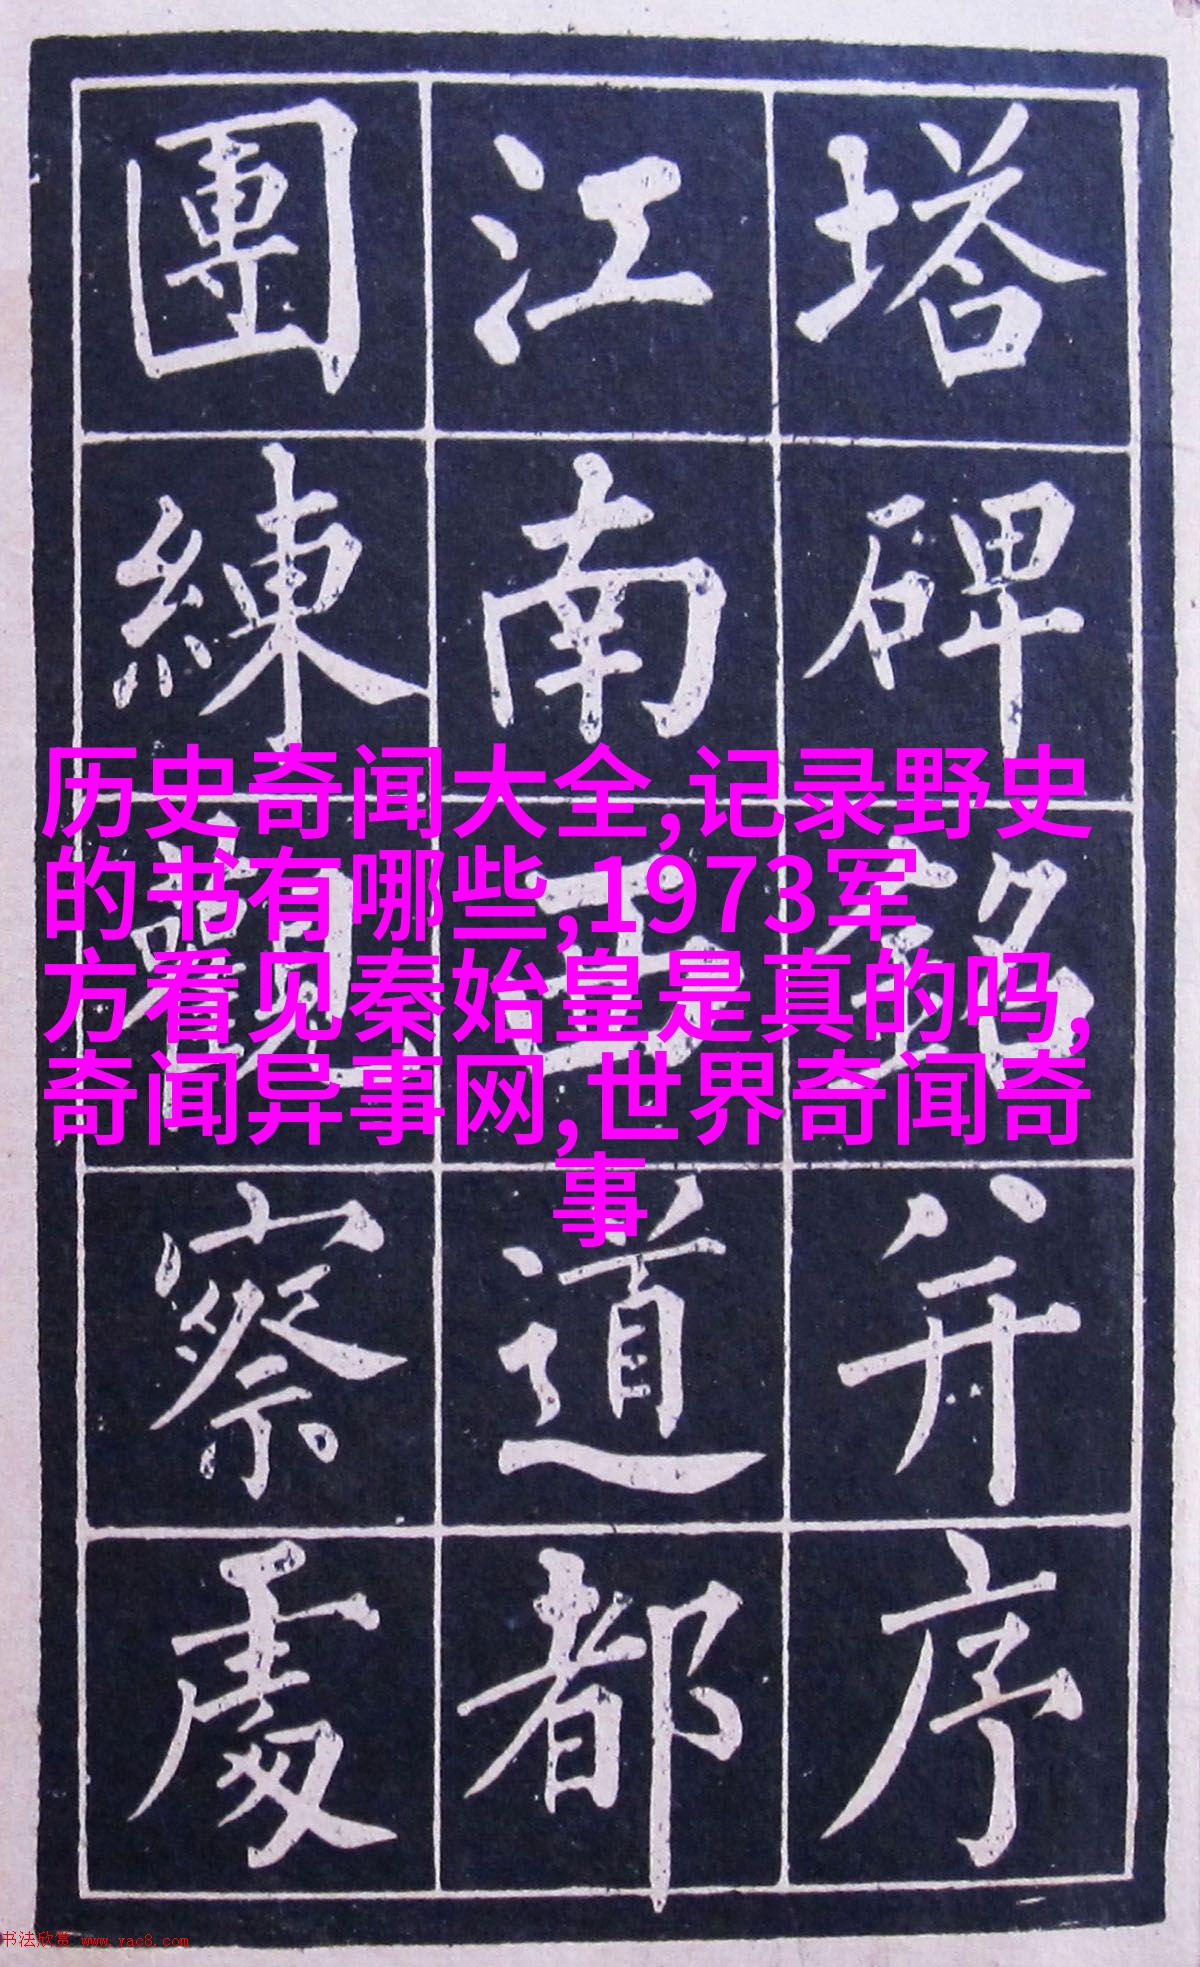 塔碑銘并序
江南西道都
團練觀察處
历史奇闻大全,记录野史
的书有哪些,1973军
方看见秦始皇是真的吗,
奇闻异事网,世界奇闻奇
事
书法欣赏 www.yac8.com